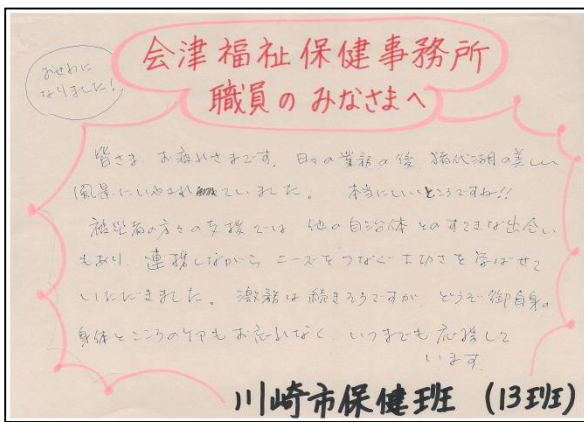 おせわに
なりました!
会津福祉保健事務所
職員のみなさまへ
皆さま お疲れさまです。日々の業務の後 猪代湖の美しい
風景にいやされていました。 本当にいいところですね!!
被災者の方々の支援では 他の自治体とのすてきな出会い
もあり、連携しながら ニーズをつなぐ大切さを学ばせて
いただきました。 激務は続きそうですが、どうぞ御自身の
身体とこころのケアもお忘れなく いつまでも応援して
います。
川崎市保健班 (13班)